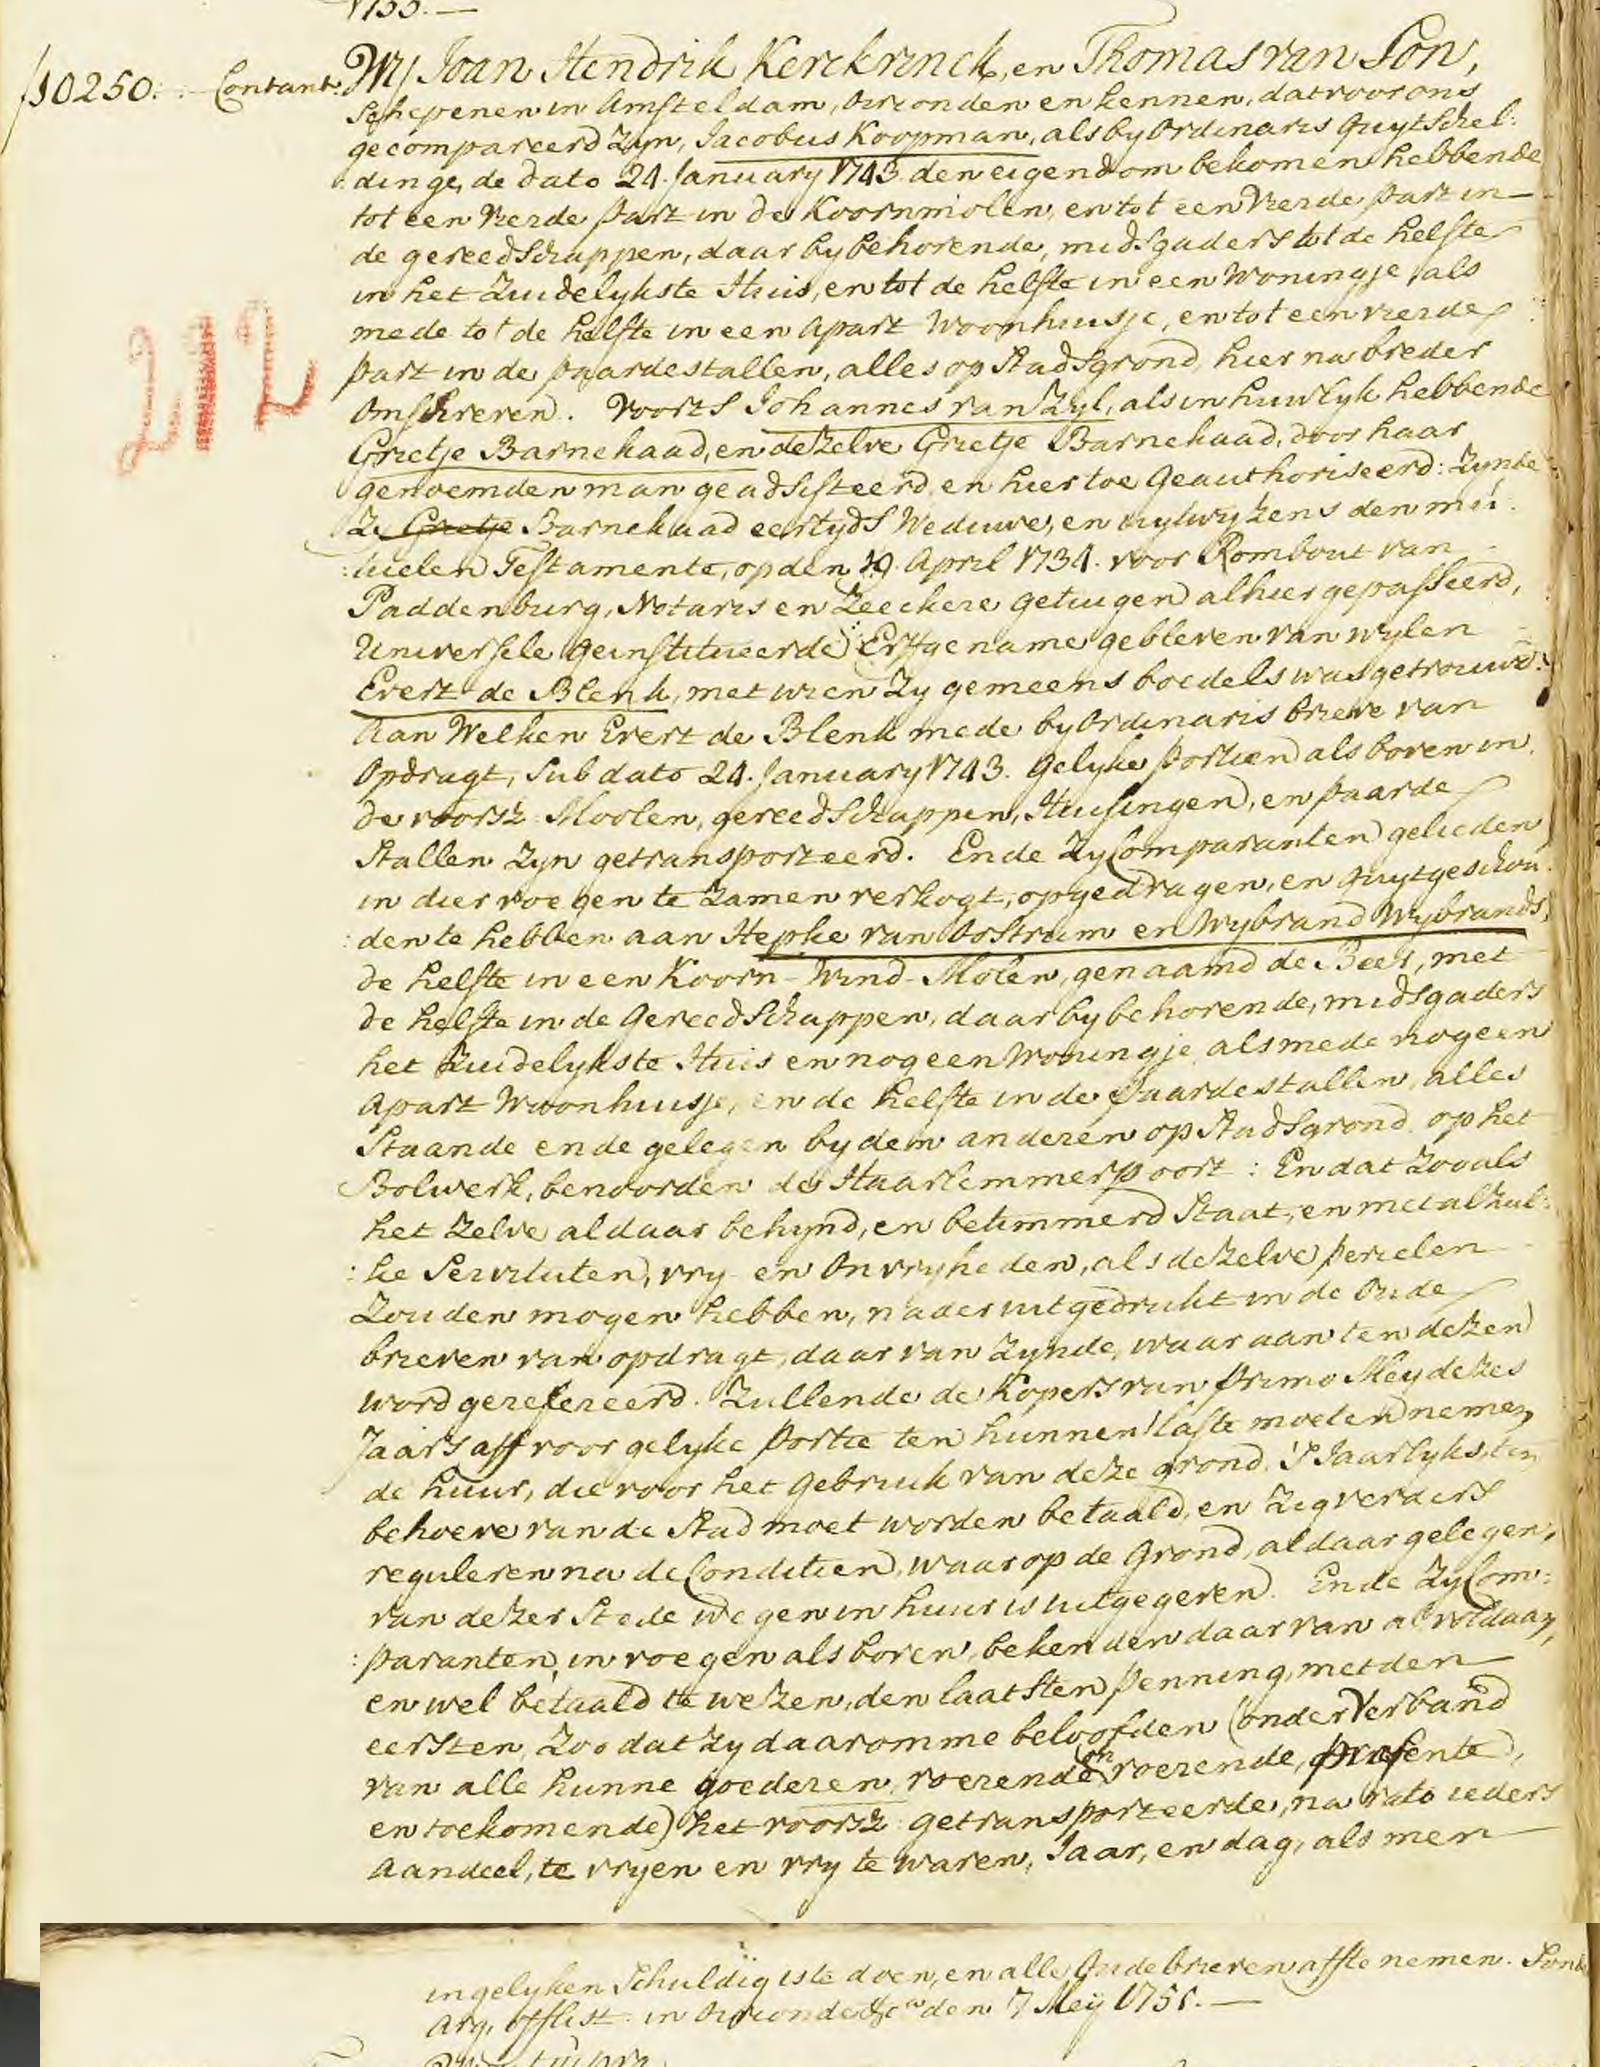 1755.—
ƒ10250:- Contant. Wij Joan Hendrik Kerckrinck, en Thomas van Son,
Schepenen in Amsteldam, Oirconden en kennen, dat voor ons
gecompareerd zijn, Jacobus Koopman, als by Ordinaris Quytschel:
:dinge, de dato 24. January 1743 den eigendom bekomen hebbende
tot een vierde part in de Koornmolen, en tot een vierde part in
de gereedschappen, daar by behorende, midsgaders tot de helfte
in het Zuidelykste Huis, en tot de helfte in een Woningje, als
mede tot de helfte in een apart Woonhuisje, en tot een vierde
part in de paardestallen, alles op Stadsgrond, hier na breder
Omschreven. Voorts Johannes van Zyl, als in huwlyk hebbende
212
Grietje Barnekaad, en dezelve Grietje Barnekaad, door haar
genoemden man geadsisteerd, en hier toe Geauthoriseerd: Zynde
Ze Grietje Barnekaad eertyds Weduwe, en uytwyzens den mu:
:tuelen Testamente, op den 19. April 1734. voor Rombout van
Paddenburg, Notaris en Zeeckere getuigen alhier gepasseerd,
Universele geinstitueerde Erfgename gebleven van wylen
Evert de Blenk, met wien Zy gemeens boedels was getrouwt.
Aan Welken Evert de Blenk mede by Ordinaris brieve van
Opdragt, sub dato 24. January 1743. gelyke portien als boven in
de voorsz. Moolen, gereedschappen, Huisingen, en paarde
Stallen Zyn getransporteerd. Ende Zy Comparanten gelieden
in dier voegen te Zamen verkogt, opgedragen, en quytgeschou:
:den te hebben aan Hepke van Oostrum en Wybrand Wybrands,
de helfte in een Koorn-Wind-Molen, genaamd de Beer, met
de helfte in de Gereedschappen, daar by behorende, midsgaders
het Zuidelykste Huis en nog een Woningje, als mede nog een
apart Woonhuisje, en de helfte in de paardestallen, alles
Staande ende gelegen by den anderen op Stadsgrond, op het
Bolwerk, benoorden de Haarlemmerpoort: En dat Zoo als
het Zelve aldaar behynd, en betimmerd Staat, en met al zul:
:ke Servituten, vry en Onvryheden, als dezelve percelen
Zouden mogen hebben, nader uitgedrukt in de Oude
brieven van opdragt, daar van Zynde, waar aan ten dezen
word gerefereerd. Zullende de Kopers van primo Mey dezes
Jaars aff voor gelyke portie ten hunnen laste moeten nemen,
de huur, die voor het gebruik van deze grond, 's Jaarlyks, ten
behoeve van de Stad moet worden betaald, en Zig verders
reguleren na de Conditien, waar op de Grond, aldaar gelegen,
van dezer Stede wegen in huur is uitgegeven. Ende Zy Com:
:paranten, in voegen als boven, bekenden daar van al voldaan,
en wel betaald te wezen, den laatsten penning, met den
eersten, Zoo dat Zy daaromme beloofden (onder Verband
van alle hunne goederen, roerende, onroerende, præsente,
en toekomende) het voorsz: getransporteerde, na rato ieders
Aandeel, te vryen en vry te waren, Jaar, en dag, als men
ingelyken Schuldig is te doen, en alle Oude brieven aff te nemen. Sonder
Arg, offlist: in Oirconde &cra den 7 Meij 1755.—